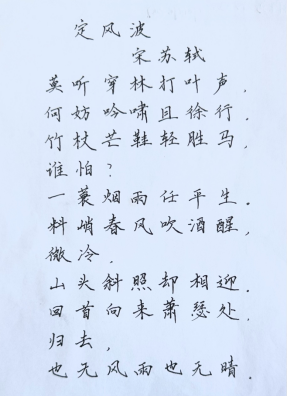 定风波
宋苏轼
莫听穿林打叶声.
何妨吟啸且徐行.
竹杖芒鞋轻胜马,
谁怕?
一蓑烟雨任平生.
料峭春风吹酒醒,
微冷.
山头斜照却相迎.
回首向来萧瑟处,
归去,
也无风雨也无晴.